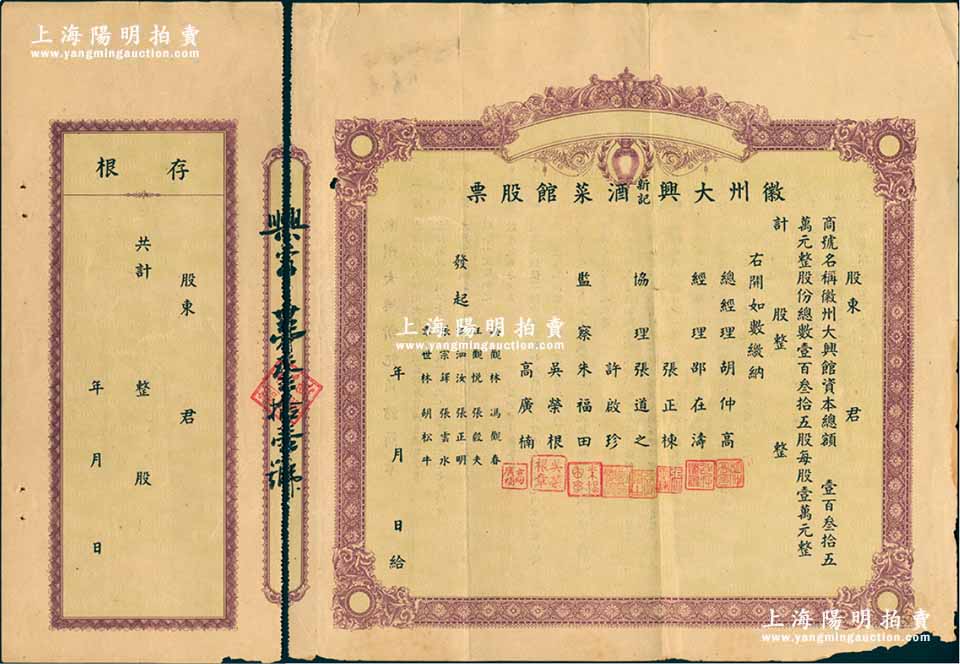 上海陽明拍賣
www.yangmingauction.com
徽州大興新記酒菜館股票
股東 君
商號名稱徽州大興館資本總額 壹百叁拾五
萬元整股份總數壹百叁拾五股每股壹萬元整
計 股整 整
右開如數繳納
總經理胡仲高
經理邵在濤
張正棟
協理張道之
許啟珍
監察朱福田
吳榮根
高廣楠
發起
觀林 馮觀春
汪觀悅 張毅夫
泗汝 張正明
張宗鐸 張雲水
世林 胡松牛
年 月 日給
上海陽明拍賣
www.yangmingauction.com
興字 第叁拾壹號
存根
股東 君
共計 整 股
年 月 日
上海陽明拍賣
www.yangmingauction.com